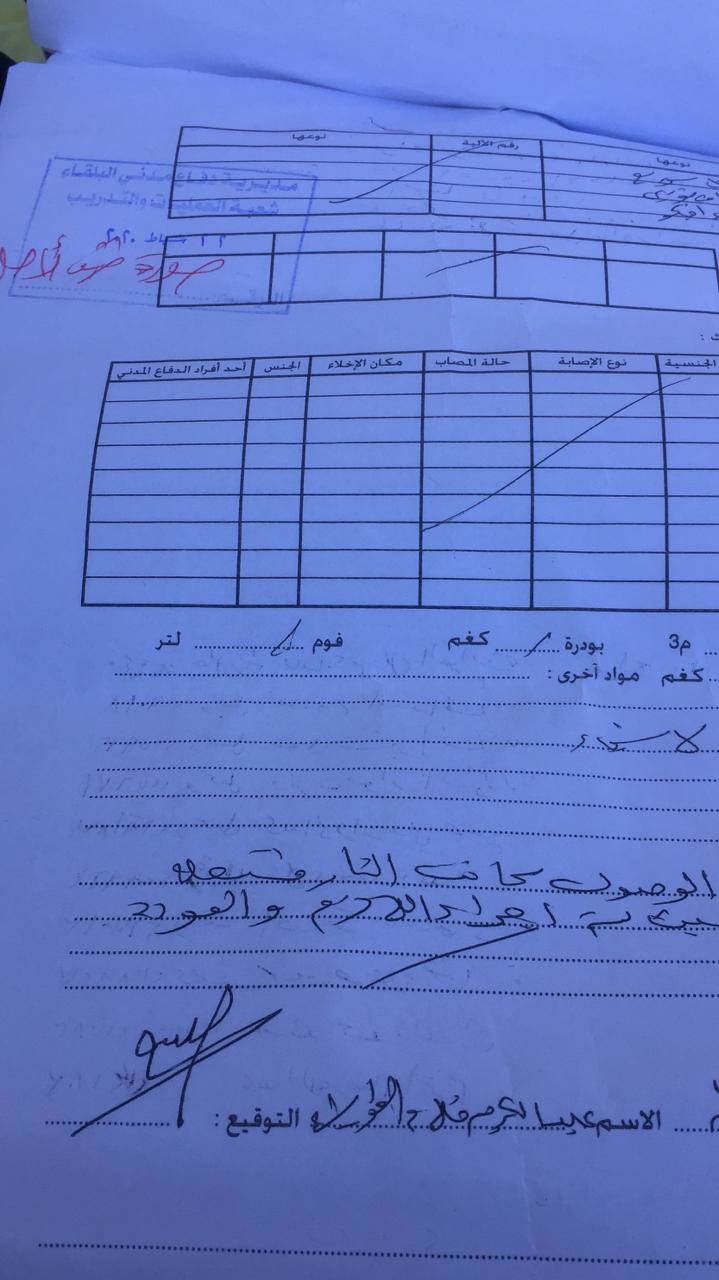 نوعها رقم الآلية نوعها
مديرية دفاع مدني البلقاء
شعبة العمليات والتدريب
صورة طبق الأصل
الجنسية نوع الإصابة حالة المصاب مكان الإخلاء الجنس أحد أفراد الدفاع المدني
م3 بودرة ........ كغم فوم ........ لتر
كغم مواد أخرى :
لا شيء
الوصول كانت النار مشتعلة
اجراء اللازم والعودة
الاسم عبدالكريم فلاح التوقيع :